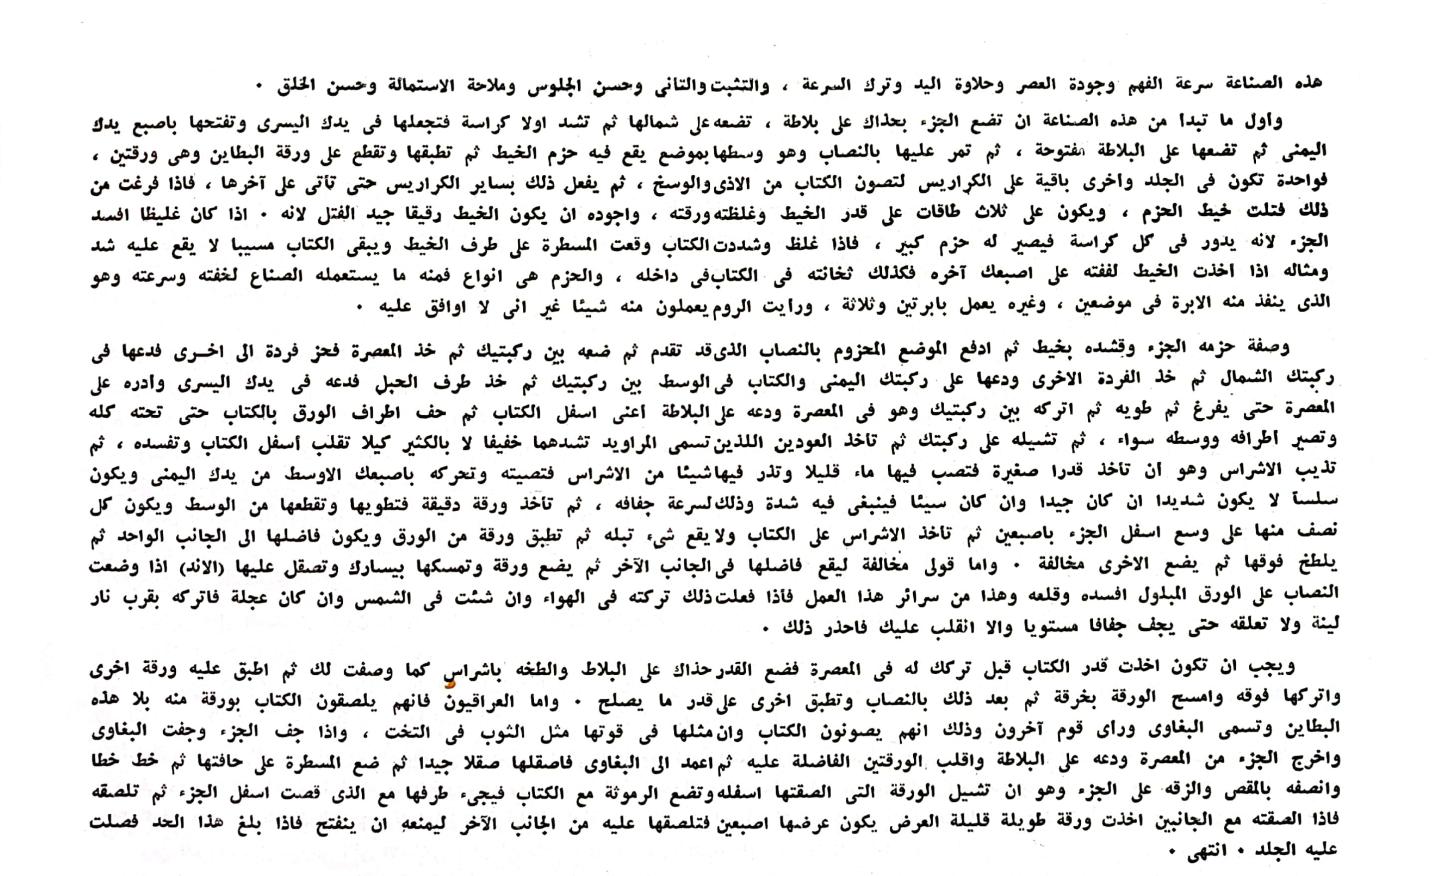 هذه الصناعة سرعة الفهم وجودة العصر وحلاوة اليد وترك السرعة ، والتثبت والتانى وحسن الجلوس وملاحة الاستمالة وحسن الخلق ٠
واول ما تبدا من هذه الصناعة ان تضع الجزء بحذاك على بلاطة ، تضعه على شمالها ثم تشد اولا كراسة فتجعلها فى يدك اليسرى وتفتحها باصبع يدك
اليمنى ثم تضعها على البلاطة مفتوحة ، ثم تمر عليها بالنصاب وهو وسطها بموضع يقع فيه حزم الخيط ثم تطبقها وتقطع على ورقة البطاين وهى ورقتين ،
فواحدة تكون فى الجلد وأخرى باقية على الكراريس لتصون الكتاب من الاذى والوسخ ، ثم يفعل ذلك بساير الكراريس حتى تأتى على آخرها ، فاذا فرغت من
ذلك فتلت خيط الحزم ، ويكون على ثلاث طاقات على قدر الخيط وغلظته ورقته ، واجوده ان يكون الخيط رقيقا جيد الفتل لانه ٠ اذا كان غليظا افسد
الجزء لانه يدور فى كل كراسة فيصير له حزم كبير ، فاذا غلظ وشددت الكتاب وقعت المسطرة على طرف الخيط ويبقى الكتاب مسيبا لا يقع عليه شد
ومثاله اذا اخذت الخيط لففته على اصبعك آخره فكذلك ثخانته فى الكتاب فى داخله ، والحزم هى انواع فمنه ما يستعمله الصناع لخفته وسرعته وهو
الذى ينفذ منه الابرة فى موضعين ، وغيره يعمل بابرتين وثلاثة ، ورايت الروم يعملون منه شيئا غير انى لا اوافق عليه ٠
وصفة حزمه الجزء وقشده بخيط ثم ادفع الموضع المحزوم بالنصاب الذى قد تقدم ثم ضعه بين ركبتيك ثم خذ المعصرة فحز فردة الى اخرى فدعها فى
ركبتك الشمال ثم خذ الفردة الاخرى ودعها على ركبتك اليمنى والكتاب فى الوسط بين ركبتيك ثم خذ طرف الحبل فدعه فى يدك اليسرى وادره على
المعصرة حتى يفرغ ثم طويه ثم اتركه بين ركبتيك وهو فى المعصرة ودعه على البلاطة اعنى اسفل الكتاب ثم حف اطراف الورق بالكتاب حتى تحته كله
وتصير اطرافه ووسطه سواء ، ثم تشيله على ركبتك ثم تاخذ العودين اللذين تسمى المراويد تشدهما خفيفا لا بالكثير كيلا تقلب أسفل الكتاب وتفسده ، ثم
تذيب الاشراس وهو أن تأخذ قدرا صغيرة فتصب فيها ماء قليلا وتذر فيها شيئا من الاشراس فتصيته وتحركه باصبعك الاوسط من يدك اليمنى ويكون
سلسآ لا يكون شديدا ان كان جيدا وان كان سيئا فينبغى فيه شدة وذلك لسرعة جفافه ، ثم تأخذ ورقة دقيقة فتطويها وتقطعها من الوسط ويكون كل
نصف منها على وسع اسفل الجزء باصبعين ثم تأخذ الاشراس على الكتاب ولا يقع شىء تبله ثم تطبق ورقة من الورق ويكون فاضلها الى الجانب الواحد ثم
يلطخ فوقها ثم يضع الاخرى مخالفة ٠ واما قولى مخالفة ليقع فاضلها فى الجانب الآخر ثم يضع ورقة وتمسكها بيسارك وتصقل عليها (الاند) اذا وضعت
النصاب على الورق المبلول افسده وقلعه وهذا من سرائر هذا العمل فأذا فعلت ذلك تركته فى الهواء وان شئت فى الشمس وان كان عجلة فاتركه بقرب نار
لينة ولا تعلقه حتى يجف جفافا مستويا والا انقلب عليك فاحذر ذلك ٠
ويجب ان تكون اخذت قدر الكتاب قبل تركك له فى المعصرة فضع القدر حذاك على البلاط والطخه باشراس كما وصفت لك ثم اطبق عليه ورقة اخرى
واتركها فوقه وامسح الورقة بخرقة ثم بعد ذلك بالنصاب وتطبق اخرى على قدر ما يصلح ٠ واما العراقيون فانهم يلصقون الكتاب بورقة منه بلا هذه
البطاين وتسمى البغاوى وراى قوم آخرون وذلك انهم يصونون الكتاب وان مثلها فى قوتها مثل الثوب فى التخت ، واذا جف الجزء وجفت البغاوى
واخرج الجزء من المعصرة ودعه على البلاطة واقلب الورقتين الفاضلة عليه ثم اعمد الى البغاوى فاصقلها صقلا جيدا ثم ضع المسطرة على حافتها ثم خط خطا
وانصفه بالمقص والزقه على الجزء وهو ان تشيل الورقة التى الصقتها اسفله وتضع الرموثة مع الكتاب فيجىء طرفها مع الذى قصت اسفل الجزء ثم تلصقه
فاذا الصقته مع الجانبين اخذت ورقة طويلة قليلة العرض يكون عرضها اصبعين فتلصقها عليه من الجانب الآخر ليمنعه ان ينفتح فاذا بلغ هذا الحد فصلت
عليه الجلد ٠ انتهى ٠